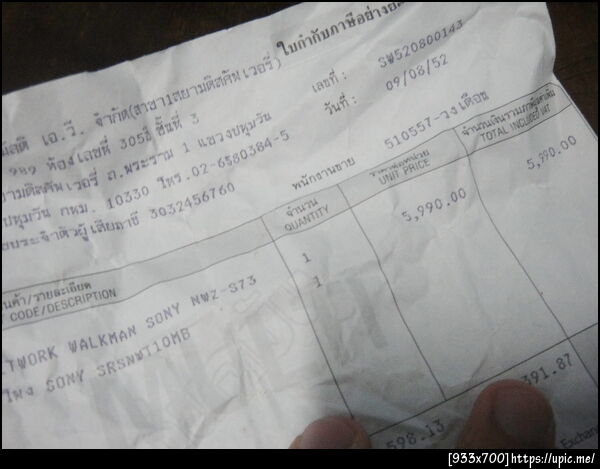 ใบกำกับภาษีอย่าง
เอ.วี. จำกัด(สาขา1สยามดิสคัฟเวอรี่)
เลขที่ : SW520800143
989 ห้องเลขที่ 305ปี ชั้นที่ 3
วันที่ : 09/08/52
ยามดิสคัฟเวอรี่ ถ.พระราม 1 แขวงปทุมวัน
ปทุมวัน กทม. 10330 โทร.02-6580384-5
ประจำตัวผู้เสียภาษี 3032456760
พนักงานขาย 510557-วงเดือน
จำนวน
QUANTITY
UNIT PRICE
จำนวนเงินรวมภาษีมูลค่าเพิ่ม
TOTAL INCLUDED VAT
นค้า/รายละเอียด
CODE/DESCRIPTION
TWORK WALKMAN SONY NWZ-S73 1 5,990.00 5,990.00
โพง SONY SRSNWT10MB 1
598.13
391.87
Exchan
[933x700]https://upic.me/